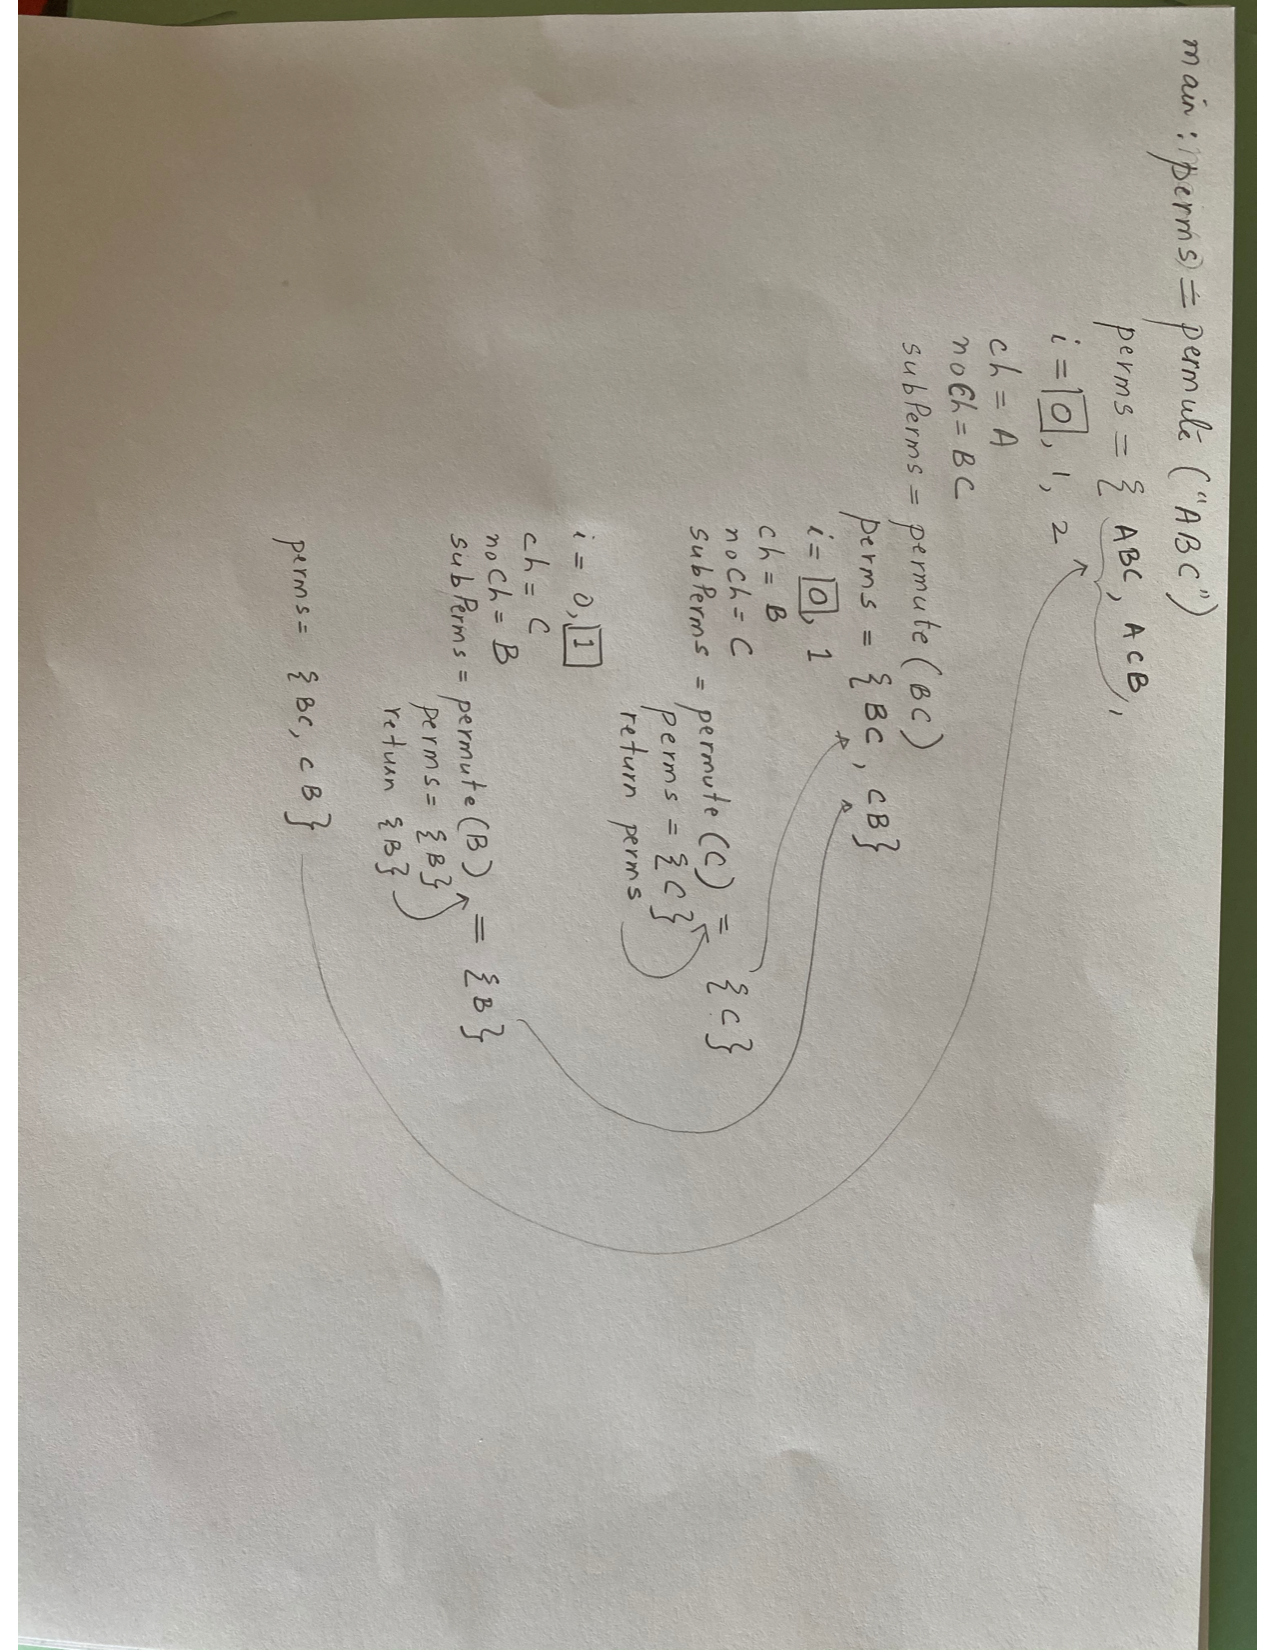 main: perms = permute ("ABC")
perms = { ABC, ACB,
i = 0, 1, 2
ch = A
noCh = BC
subPerms = permute (BC)
perms = { BC, CB}
i = 0, 1
ch = B
noCh = C
subPerms = permute (C) = { C }
perms = { C }
return perms
i = 0, 1
ch = C
noCh = B
subPerms = permute (B) = { B }
perms = { B }
return { B }
perms = { BC, CB }